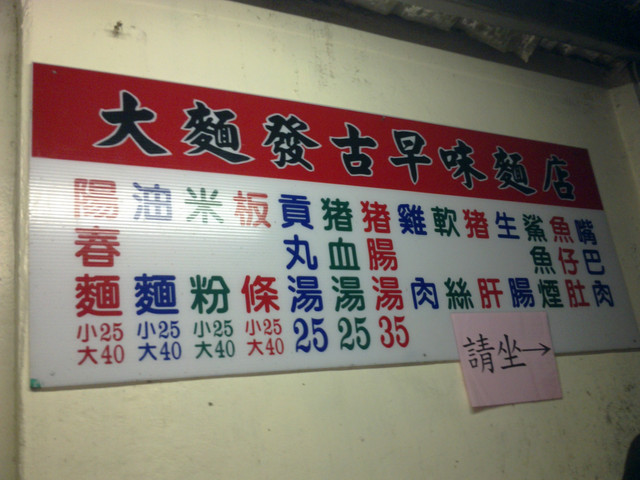 大麵發古早味麵店
陽春麵 小25 大40
油麵 小25 大40
米粉 小25 大40
板條 小25 大40
貢丸湯 25
猪血湯 25
猪腸湯 35
雞肉
軟絲
猪肝
生腸
鯊魚煙
魚仔肚
嘴巴肉
請坐→